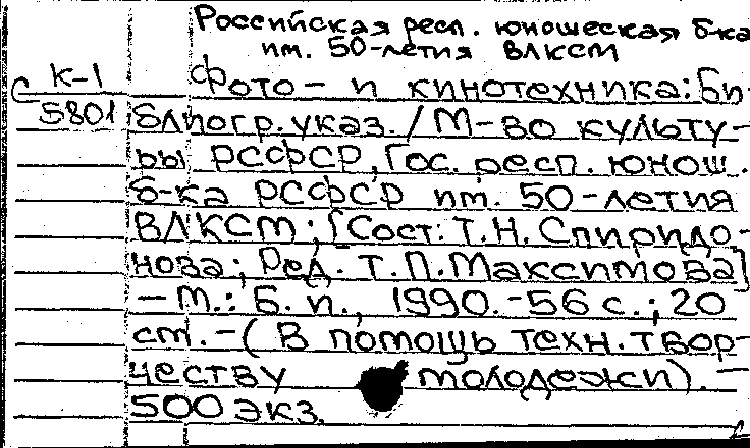 Российская респ. юношеская б-ка
им. 50-летия ВЛКСМ
К-1
5801
Фото- и кинотехника: Би-
блиогр. указ. / М-во культу-
ры РСФСР, Гос. респ. юнош.
б-ка РСФСР им. 50-летия
ВЛКСМ; [Сост: Т.Н. Спиридо-
нова; Ред. Т.П. Максимова]
- М.: Б. и., 1990. - 56 с.; 20
см. - (В помощь техн. твор-
честву молодежи). -
500 экз.